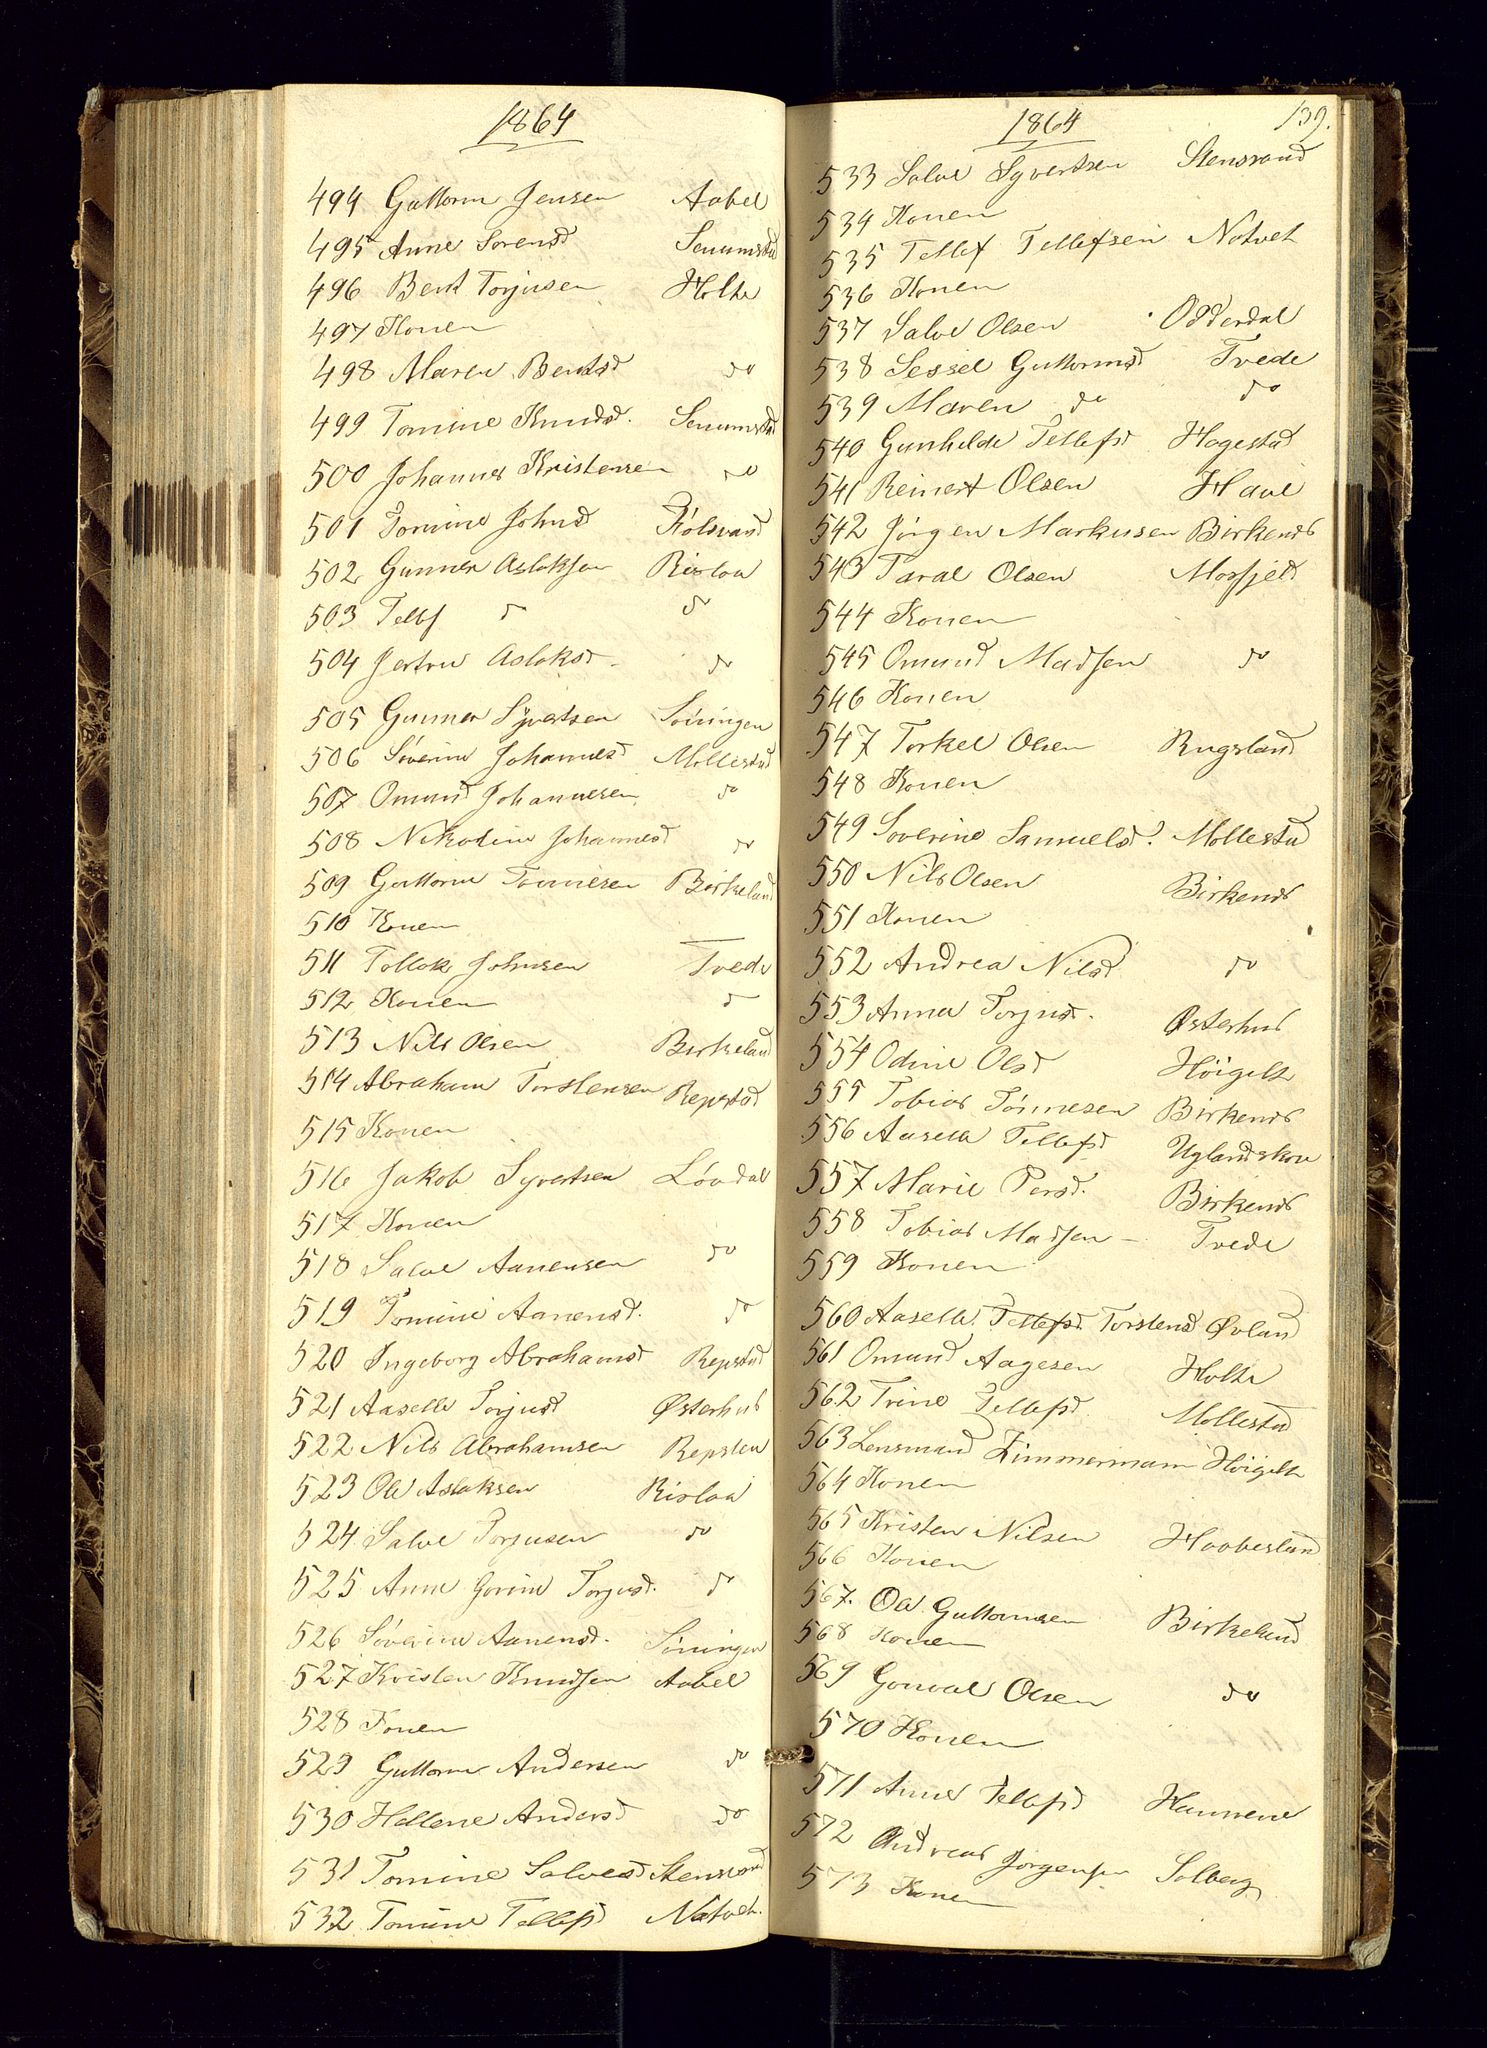 1864
494 Guttorm Jensen Aabel
495 Anne Sörensd Senumstad
496 Bent Torjusen Holte
497 Konen
498 Maren Bentsd do
499 Tomine Knudsd. Senumstad
500 Johannes Kristensen do
501 Tomine Johnsd
502 Gunner Aslaksen Rislaa
503 Tellef do do
504 Jertru Aslaksd do
505 Gunner Syvertsen Söningen
506 Söverine Johannesd Mollestad
507 Omund Johannesen do
508 Nikoline Johannesd do
509 Guttorm Tönnesen Birkeland
510 Konen
511 Tollak Johnsen Tvede
512 Konen do
513 Nils Olsen Birkeland
514 Abraham Torstensen Repstad
515 Konen
516 Jakob Syvertsen Lövdal
517 Konen
518 Salve Aanensen do
519 Tomine Aanensd. do
520 Ingeborg Abrahamsd Repstad
521 Aaselle Torjusd Østerhus
522 Nils Abrahamsen Repstad
523 Ole Aslaksen Rislaa
524 Salve Torjusen do
525 Anne Gorine Torjusd. do
526 Söverine Aanensd. Söningen
527 Kristen Knudsen Aabel
528 Konen
529 Guttorm Andersen do
530 Hellene Andersd do
531 Tomine Salvesd Stensvand
532 Tomine Tellefsd Natvet.
1864 139.
533 Salve Syvertsen Stensvand
534 Konen
535 Tellef Tellefsen Natvet
536 Konen
537 Salve Olsen Odderdal
538 Sessel Guttormsd Tvede
539 Maren do do
540 Gunhilde Tellefsd Hagestad
541 Reinert Olsen Have
542 Jörgen Markusen Birkenes
543 Taral Olsen Mosfjeld
544 Konen
545 Omund Madsen do
546 Konen
547 Torkel Olsen Rugsland
548 Konen
549 Soverine Samuelsd. Mollestad
550 Nils Olsen Birkenes
551 Konen
552 Andrea Nilsd do
553 Anna Torjusd. Østerhus
554 Odine Olsd Höigelt
555 Tobias Tönnesen Birkenes
556 Aaselle Tellefsd Uglandskov
557 Marie Persd. Birkenes
558 Tobias Madsen – Tvede
559 Konen
560 Aaselle Tellefsd. Torstensd Øvland
561 Omund Aagesen Holte
562 Trine Tellefsd Mollestad
563 Lensmand Zimmermann Höigelt
564 Konen
565 Kristen Nilsen Haaberland
566 Konen
567. Ole Guttormsen Birkeland
568 Konen
569 Gonval Olsen do
570 Konen
571 Anne Tellefsd
572 Andreas Jörgensen Solberg
573 Konen